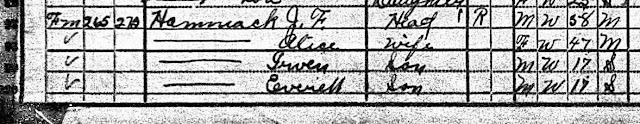 Daughter
Fm 265 273 Hammack J. F Head R M W 58 M
✓ —— Alice Wife F W 47 M
✓ —— Irwen Son M W 17 S
✓ —— Everell Son M W 19 S